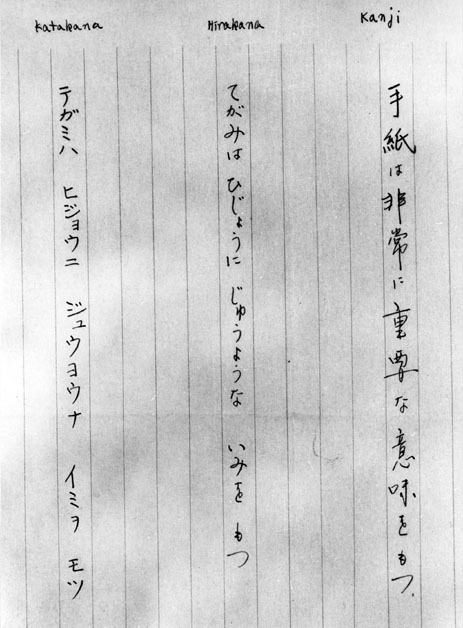 Kanji
手紙は非常に重要な意味をもつ.
Hirakana
てがみは ひじょうに じゅうような いみを もつ
Katakana
テガミハ ヒジョウニ ジュウヨウナ イミヲ モツ